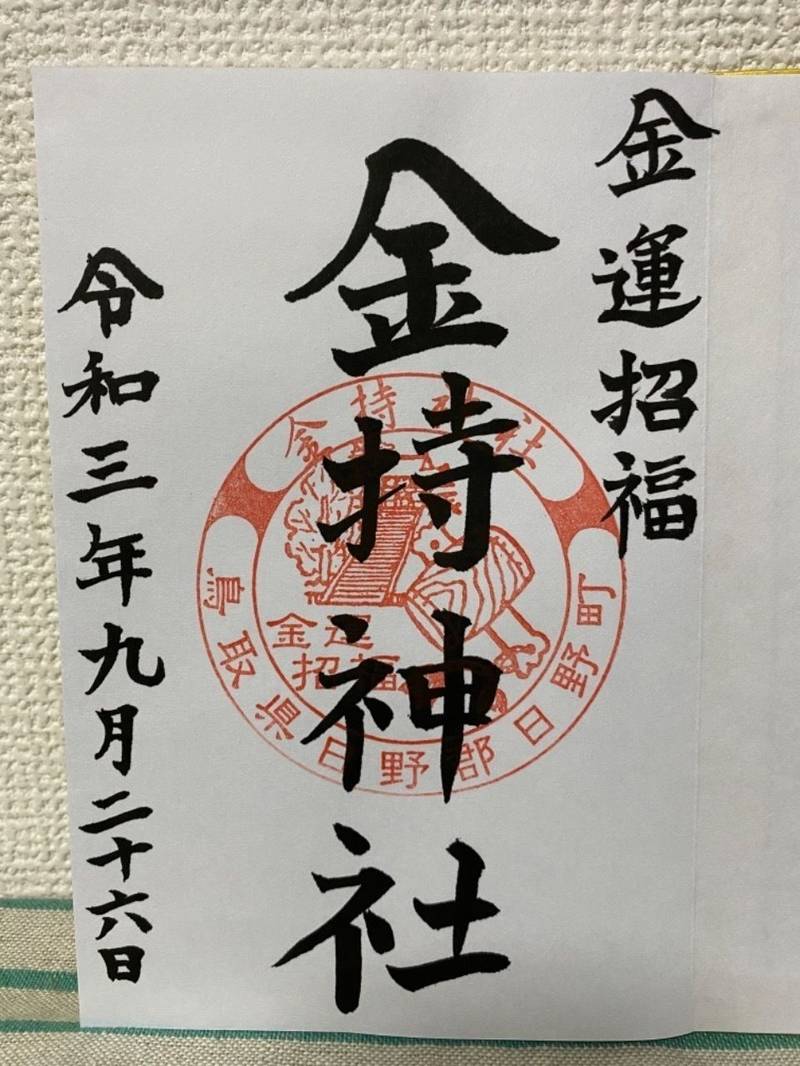 金運招福
金持神社
令和三年九月二十六日
金持神社
鳥取県日野郡日野町
金運
招福